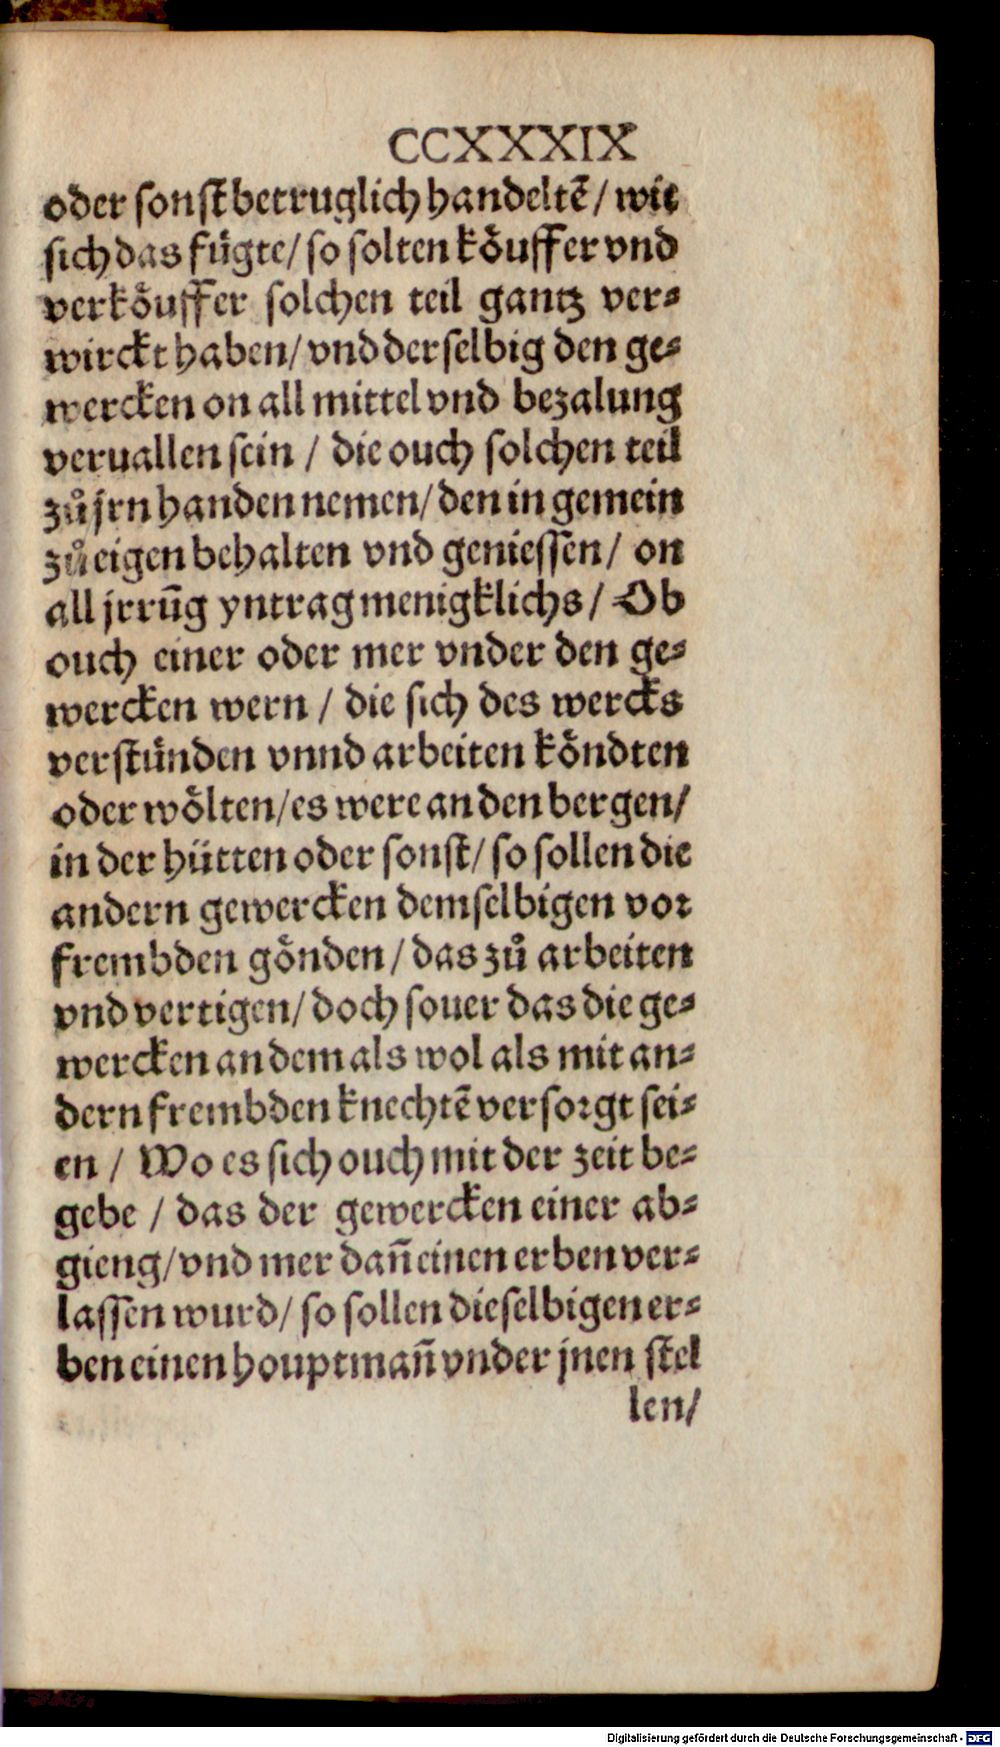 CCXXXIX
oder sonst betruglich handeltē / wie
sich das fügte / so solten kôuffer vnd
verkôuffer solchen teil gantz ver⸗
wirckt haben / vnd derselbig den ge⸗
wercken on all mittel vnd bezalung
veruallen sein / die ouch solchen teil
zů jrn handen nemen / den in gemein
zů eigen behalten vnd geniessen / on
all jrrūg yntrag menigklichs / Ob
ouch einer oder mer vnder den ge⸗
wercken wern / die sich des wercks
verstünden vnnd arbeiten köndten
oder wölten / es were an den bergen /
in der hütten oder sonst / so sollen die
andern gewercken demselbigen vor
frembden gönden / das zů arbeiten
vnd vertigen / doch souer das die ge⸗
wercken an dem als wol als mit an⸗
dern frembden knechtē versorgt sei⸗
en / Wo es sich ouch mit der zeit be⸗
gebe / das der gewercken einer ab⸗
gieng / vnd mer dañ einen erben ver⸗
lassen wurd / so sollen dieselbigen er⸗
ben einen houptmañ vnder jnen stel
len /
Digitalisierung gefördert durch die Deutsche Forschungsgemeinschaft - DFG